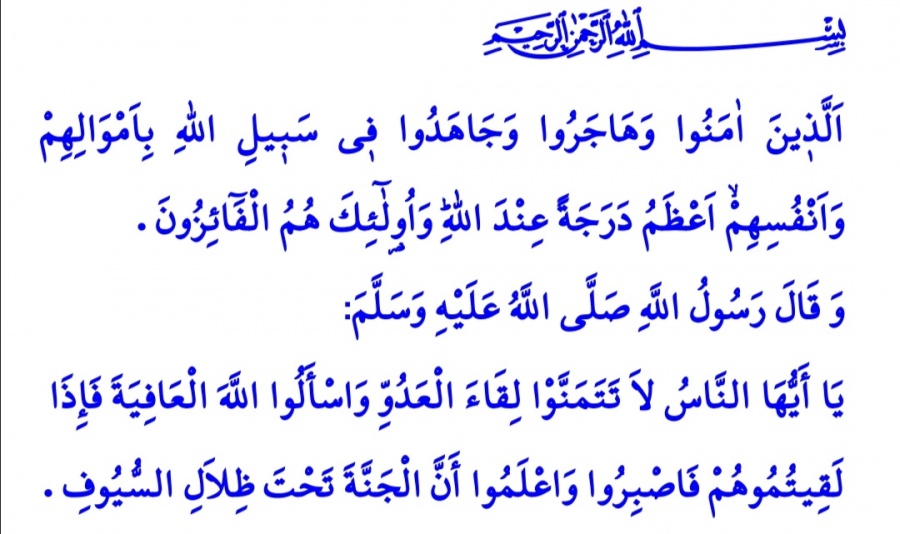 بِسْمِ اللهِ الرَّحْمٰنِ الرَّحِيمِ
اَلَّذ۪ينَ اٰمَنُوا وَهَاجَرُوا وَجَاهَدُوا ف۪ى سَب۪يلِ اللهِ بِاَمْوَالِهِمْ
وَاَنْفُسِهِمْۙ اَعْظَمُ دَرَجَةً عِنْدَ اللهِۜ وَاُو۬لٰٓئِكَ هُمُ الْفَٓائِزُونَ .
وَ قَالَ رَسُولُ اللَّهِ صَلَّى اللَّهُ عَلَيْهِ وَسَلَّمَ:
يَا أَيُّهَا النَّاسُ لاَ تَتَمَنَّوْا لِقَاءَ الْعَدُوِّ وَاسْأَلُوا اللَّهَ الْعَافِيَةَ فَإِذَا
لَقِيتُمُوهُمْ فَاصْبِرُوا وَاعْلَمُوا أَنَّ الْجَنَّةَ تَحْتَ ظِلاَلِ السُّيُوفِ .